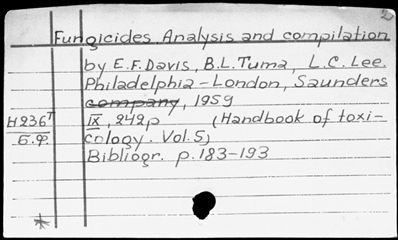 Fungicides. Analysis and compilation
by E.F. Davis, B.L. Tuma, L.C. Lee.
Philadelphia-London, Saunders
company, 1959
IX, 242p (Handbook of toxi-
cology. Vol.5)
Bibliogr. p.183-193
H236т
Б.ф.